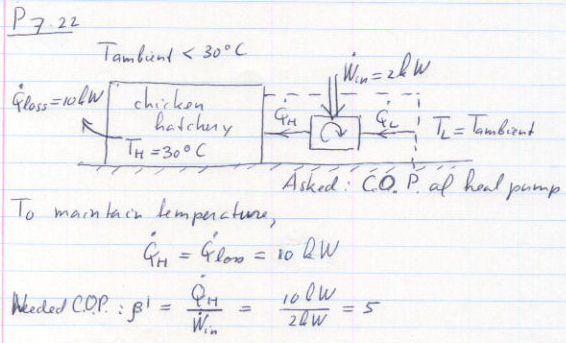 P 7.22
Tambient < 30°C
Ẇin = 2kW
Q̇loss = 10kW
chicken
hatchery
Q̇H
Q̇L
TL = Tambient
TH = 30°C
Asked: C.O.P. of heat pump
To maintain temperature,
Q̇H = Q̇loss = 10 kW
Needed C.O.P.: β' = Q̇H / Ẇin = 10 kW / 2kW = 5